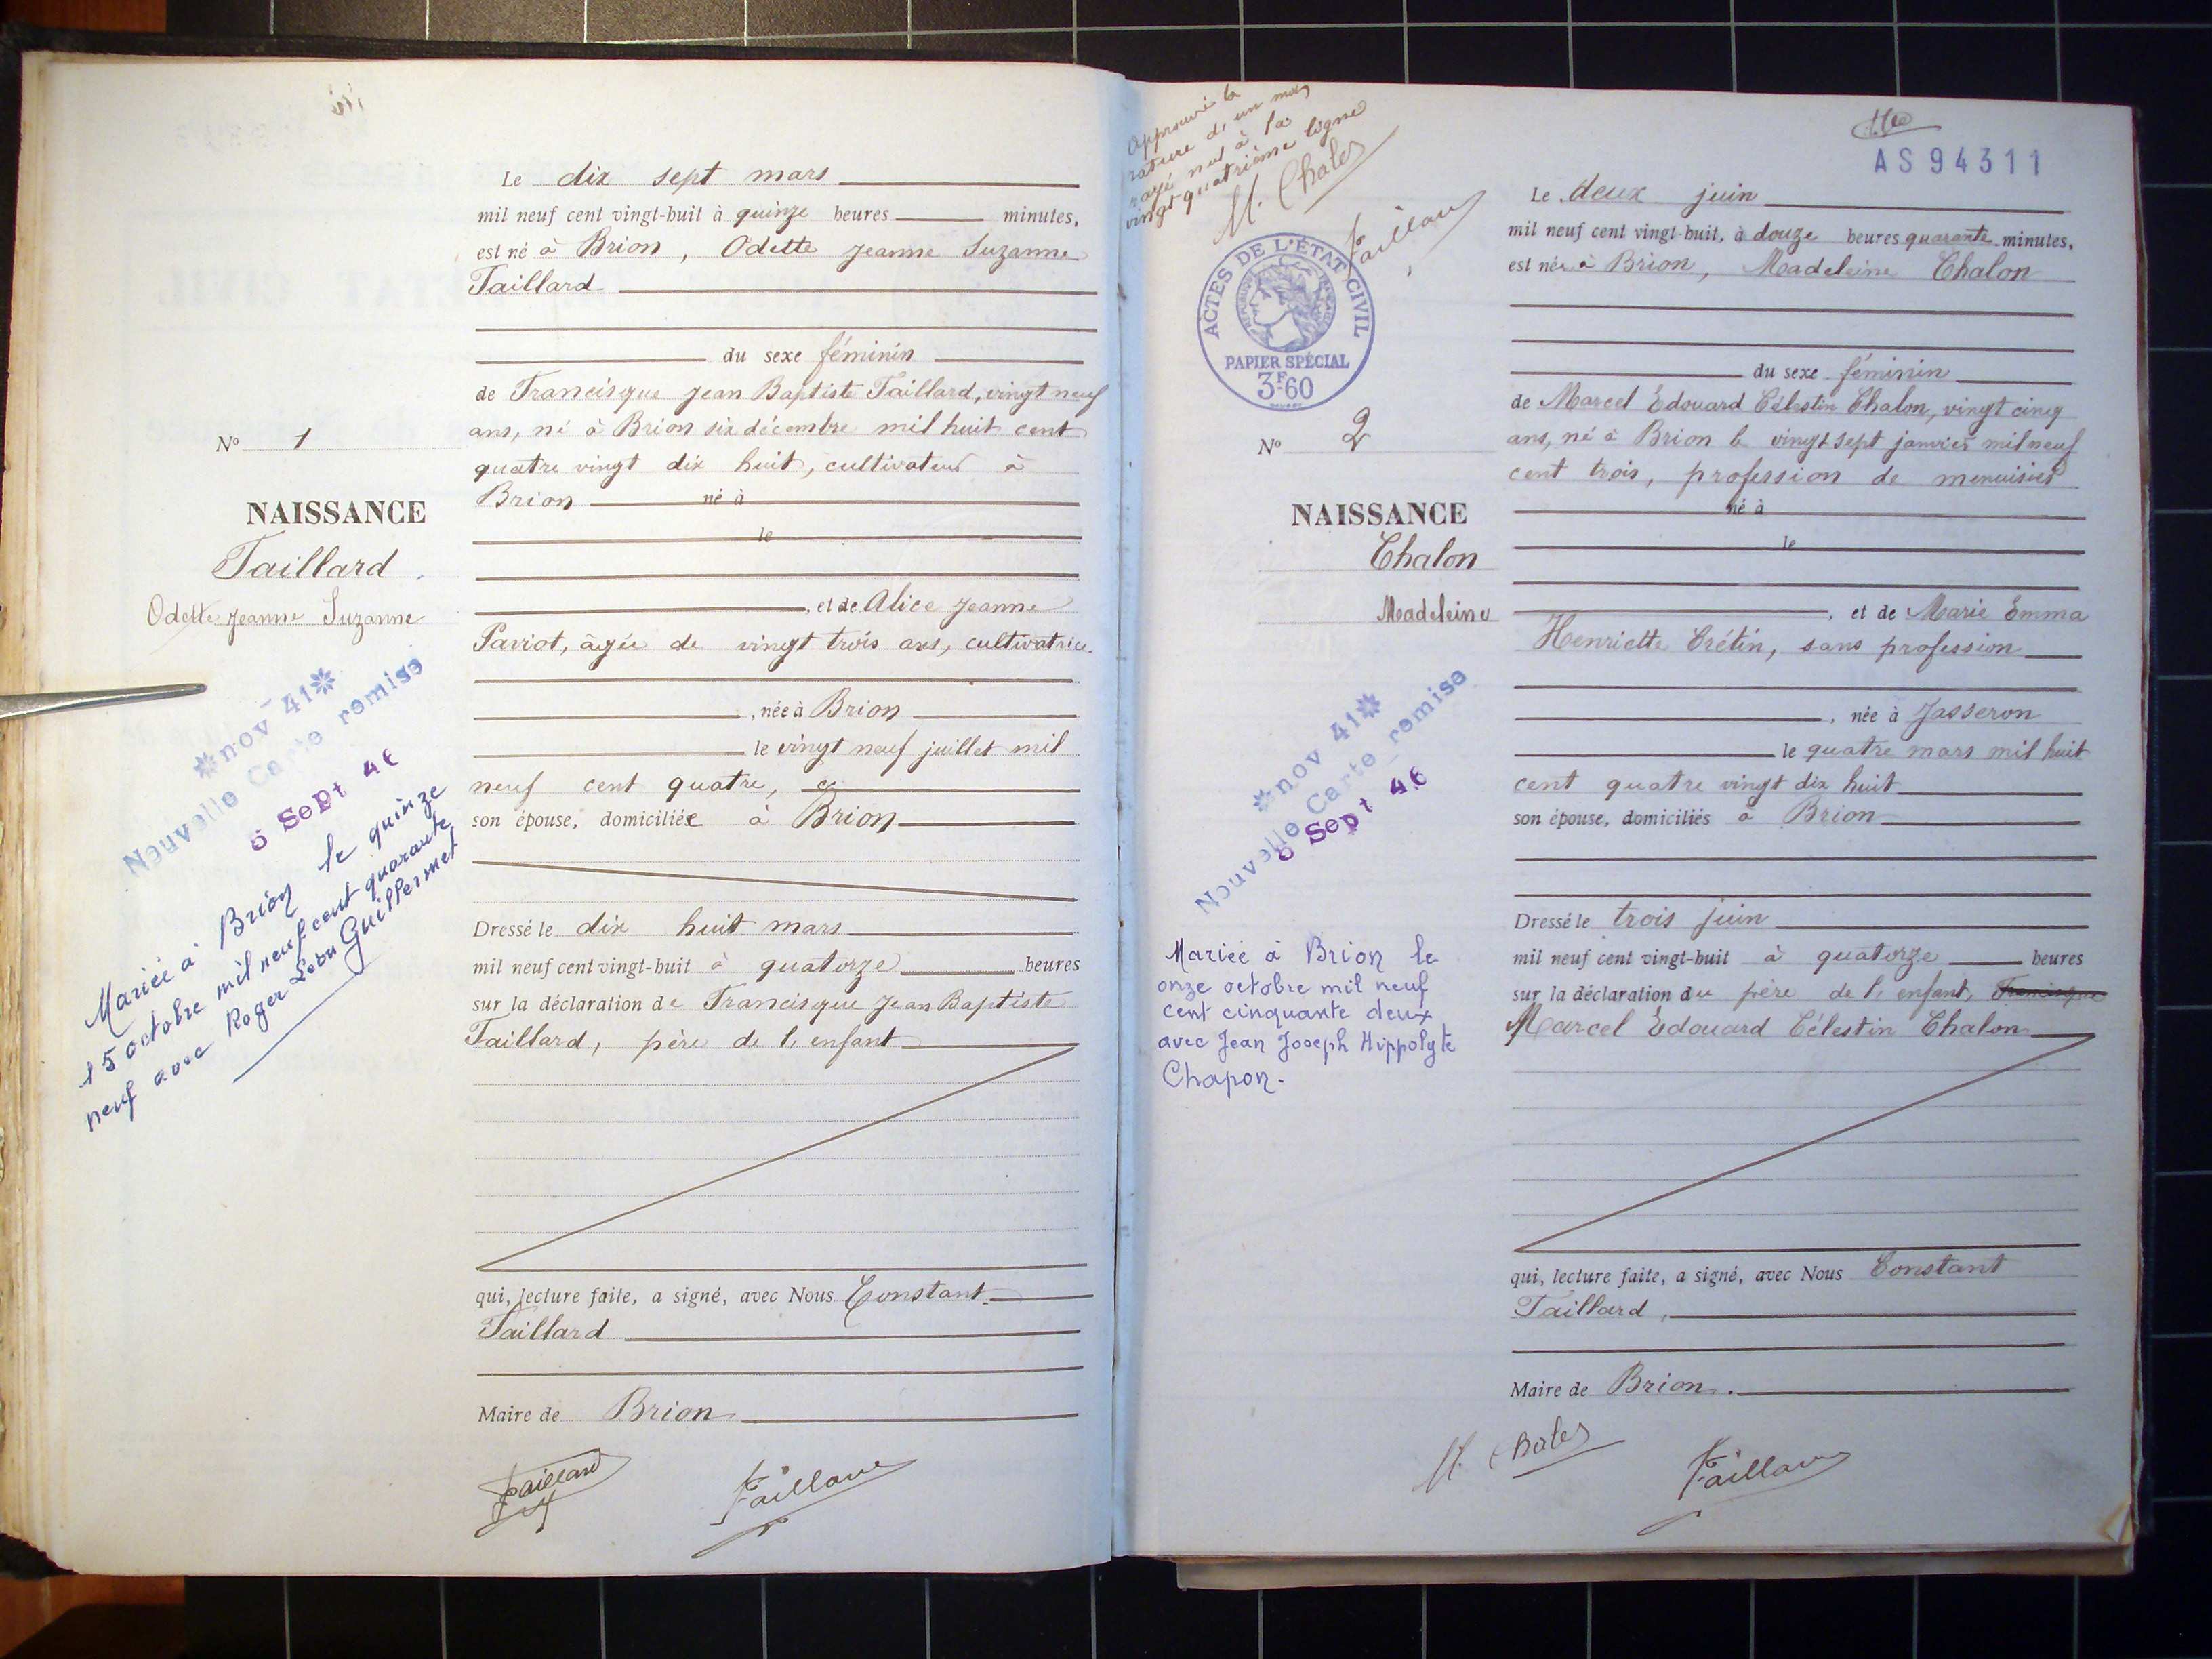 Le dix sept mars
mil neuf cent vingt-huit à quinze heures minutes,
est né à Brion, Odette Jeanne Suzanne
Taillard
du sexe féminin
de Francisque Jean Baptiste Taillard, vingt neuf
ans, né à Brion six décembre mil huit cent
quatre vingt dix huit, cultivateur à
Brion né à
le
, et de Alice Jeanne
Pariot, âgée de vingt trois ans, cultivatrice
, née à Brion
le vingt neuf juillet mil
neuf cent quatre,
son épouse, domiciliée à Brion
Dressé le dix huit mars
mil neuf cent vingt-huit à quatorze heures
sur la déclaration de Francisque Jean Baptiste
Taillard, père de l'enfant
qui, lecture faite, a signé, avec Nous Constant
Taillard
Maire de Brion
Taillard
Taillard
N° 1
NAISSANCE
Taillard
Odette Jeanne Suzanne
nov 41
Nouvelle Carte remise
6 Sept 46
Mariée à Brion le quinze
15 octobre mil neuf cent quarante
neuf avec Roger Léon Guillermet
Approuvé la
rature d'un mot
rayé nul à la
vingt-quatrième ligne
M. Chalon
Taillard
ACTES DE L'ÉTAT CIVIL
RÉPUBLIQUE FRANÇAISE
PAPIER SPÉCIAL
3F-60
N° 2
NAISSANCE
Chalon
Madeleine
nov 41
Nouvelle Carte remise
6 Sept 46
Mariée à Brion le
onze octobre mil neuf
cent cinquante deux
avec Jean Joseph Hippolyte
Chapon.
AS94311
Le deux juin
mil neuf cent vingt-huit, à douze heures quarante minutes,
est née à Brion, Madeleine Chalon
du sexe féminin
de Marcel Edouard Célestin Chalon, vingt cinq
ans, né à Brion le vingt sept janvier mil neuf
cent trois, profession de menuisier
né à
le
, et de Marie Emma
Henriette Crétin, sans profession
, née à Jasseron
le quatre mars mil huit
cent quatre vingt dix huit
son épouse, domiciliés à Brion
Dressé le trois juin
mil neuf cent vingt-huit à quatorze heures
sur la déclaration du père de l'enfant, Francisque
Marcel Edouard Célestin Chalon
qui, lecture faite, a signé, avec Nous Constant
Taillard,
Maire de Brion.
M. Chalon
Taillard